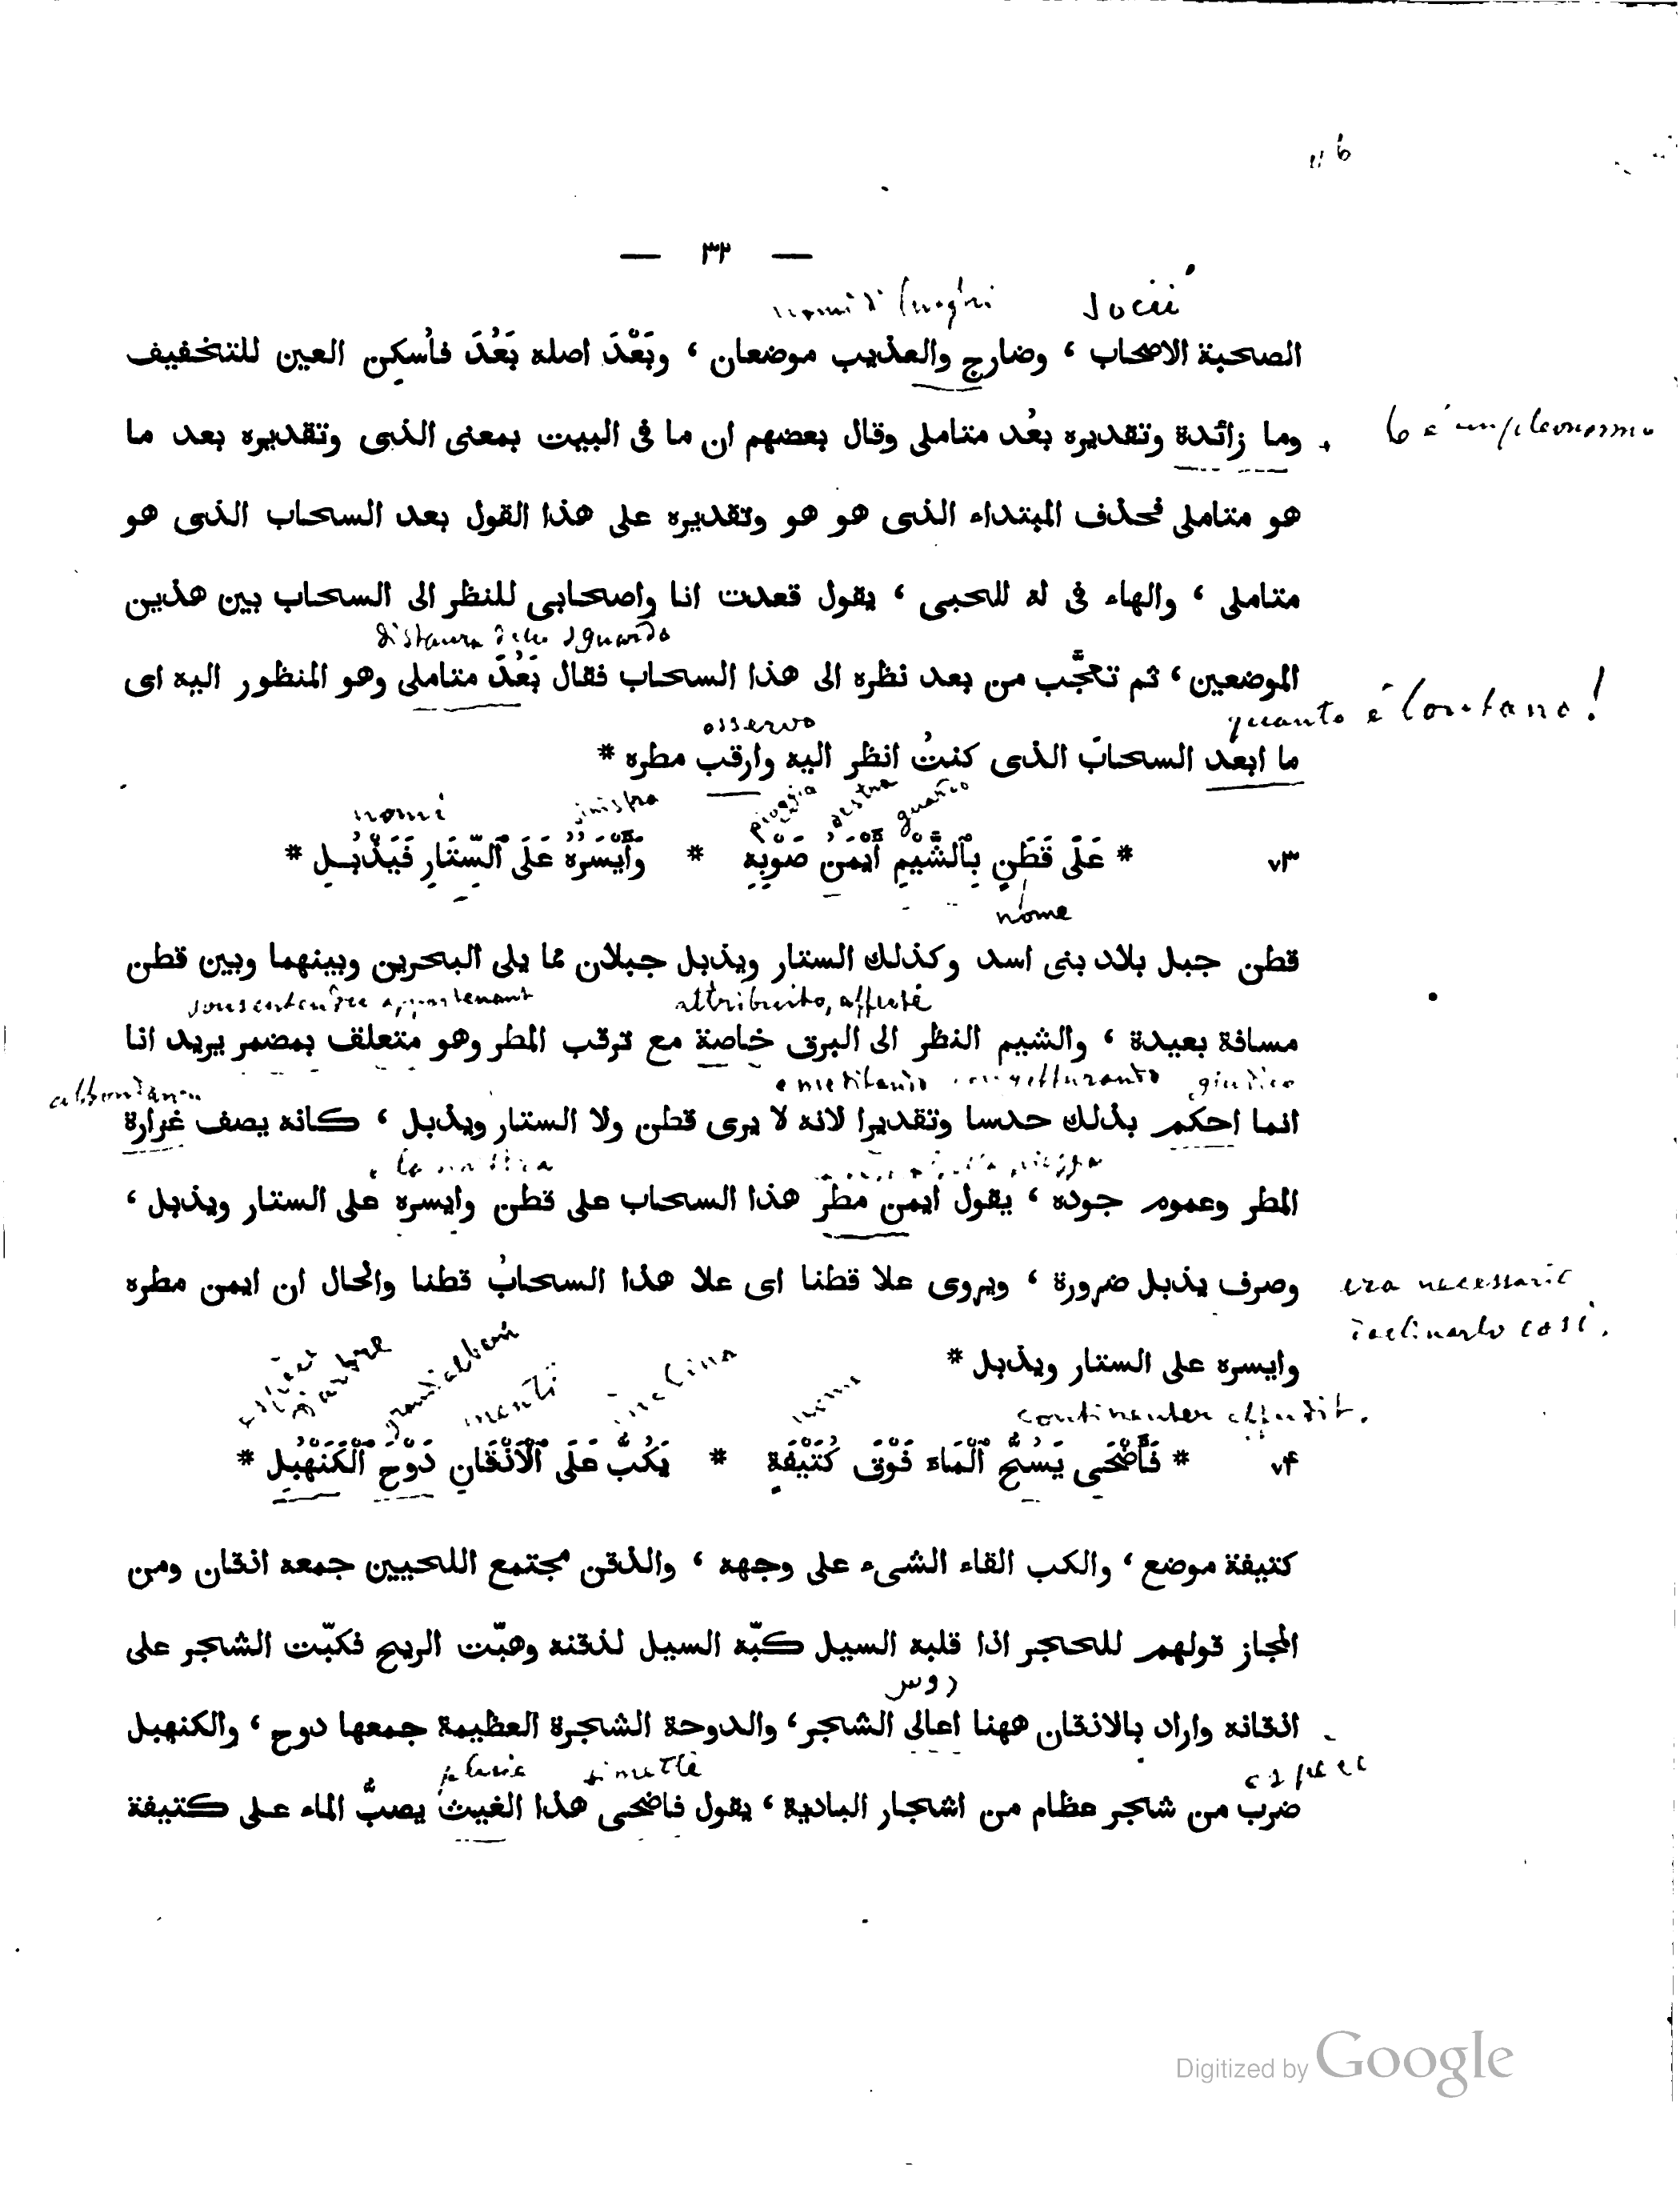 — ٣٢ —
nomi di luoghi    socii
الصحبة الاصحاب ، وضارج والعذيب موضعان ، وبَعْدَ اصله بَعُدَ فأسكن العين للتخفيف
وما زائدة وتقديره بعُد متاملى وقال بعضهم ان ما فى البيت بمعنى الذى وتقديره بعد ما
هو متاملى فحذف المبتداء الذى هو هو وتقديره على هذا القول بعد السحاب الذى هو
متاملى ، والهاء فى له للحبى ، يقول قعدت انا واصحابى للنظر الى السحاب بين هذين
sguardo
الموضعين ، ثم تعجّب من بعد نظره الى هذا السحاب فقال بَعُدَ متاملى وهو المنظور اليه اى
quanto è lontano!
osservo
ما ابعد السحابَ الذى كنتُ انظر اليه وارقب مطره *
nomi    sinistra    pioggia    destra
٧٣ * عَلَى قَطَنٍ بِٱلشَّيْمِ أَيْمَنُ صَوْبِهِ * وَأَيْسَرُهُ عَلَى ٱلسِّتَارِ فَيَذْبُلِ *
nome
قطن جبل بلاد بنى اسد وكذلك الستار ويذبل جبلان مما يلى البحرين وبينهما وبين قطن
مسافة بعيدة ، والشيم النظر الى البرق خاصة مع ترقب المطر وهو متعلق بمضمر يريد انا
انما احكم بذلك حدسا وتقديرا لانه لا يرى قطن ولا الستار ويذبل ، كانه يصف غرارة
المطر وعموم جوده ، يقول ايمن مطر هذا السحاب على قطن وايسره على الستار ويذبل ،
وصرف يذبل ضرورة ، ويروى علا قطنا اى علا هذا السحابُ قطنا والحال ان ايمن مطره
era necessario
وايسره على الستار ويذبل *
continenter effudit.
٧٤ * فَأَضْحَى يَسُحُّ ٱلْمَاء فَوْقَ كُتَيْفَةٍ * يَكُبُّ عَلَى ٱلْأَذْقَانِ دَوْحَ ٱلْكَنَهْبُلِ *
كتيفة موضع ، والكب القاء الشىء على وجهه ، والذقن مجتمع اللحيين جمعه اذقان ومن
المجاز قولهم للحجر اذا قلبه السيل كبّه السيل لذقنه وهبّت الريح فكبّت الشجر على
روس
اذقانه واراد بالاذقان ههنا اعالى الشجر ، والدوحة الشجرة العظيمة جمعها دوح ، والكنهبل
ضرب من شجر عظام من اشجار البادية ، يقول فاضحى هذا الغيث يصبّ الماء على كتيفة
Digitized by Google